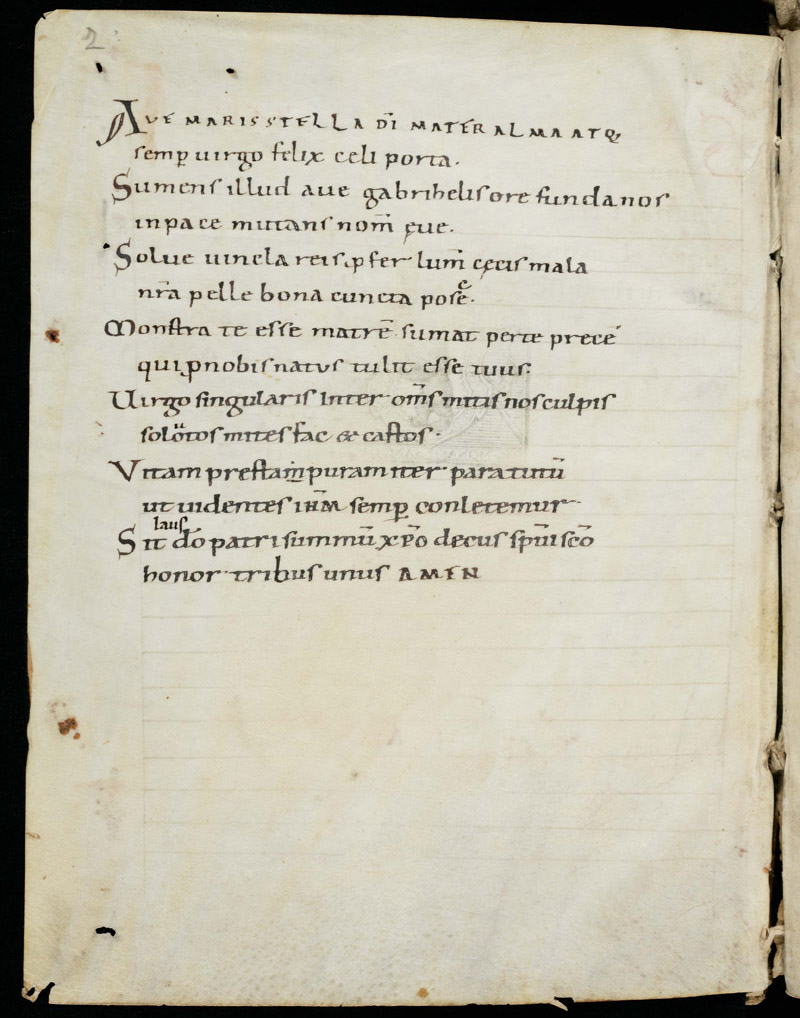 2
AVE MARIS STELLA DI̅ MATER ALMA ATQ;
semꝑ uirgo felix celi porta.
Sumens illud aue gabrihelis ore funda nos
in pace mutans nom̅ ęue.
Solue uincla reis ꝓfer lum̅ cęcis mala
nr̅a pelle bona cuncta posce.
Monstra te esse matrē sumat per te precē
qui ꝓ nobis natus tulit esse tuus.
Uirgo singularis Inter om̅s mitis nos culpis
solutos mites fac & castos.
Vitam presta puram iter para tutū
ut uidentes ihm̅ semꝑ conletemur
laus
Sit dō patri summū xp̅o decus spu̅i scō
honor tribus unus AMEN